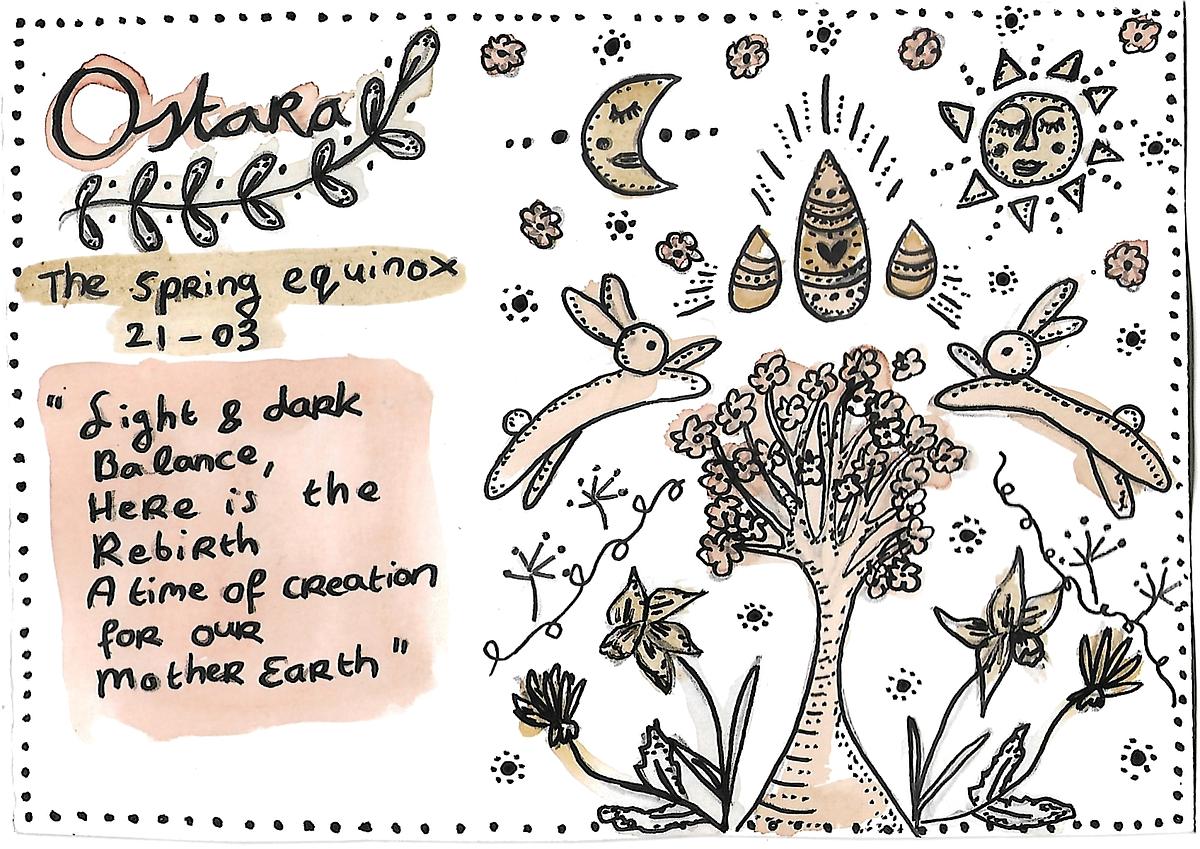 Ostara
The Spring equinox
21-03
"Light & dark
Balance,
Here is the
Rebirth
A time of creation
for our
Mother Earth"